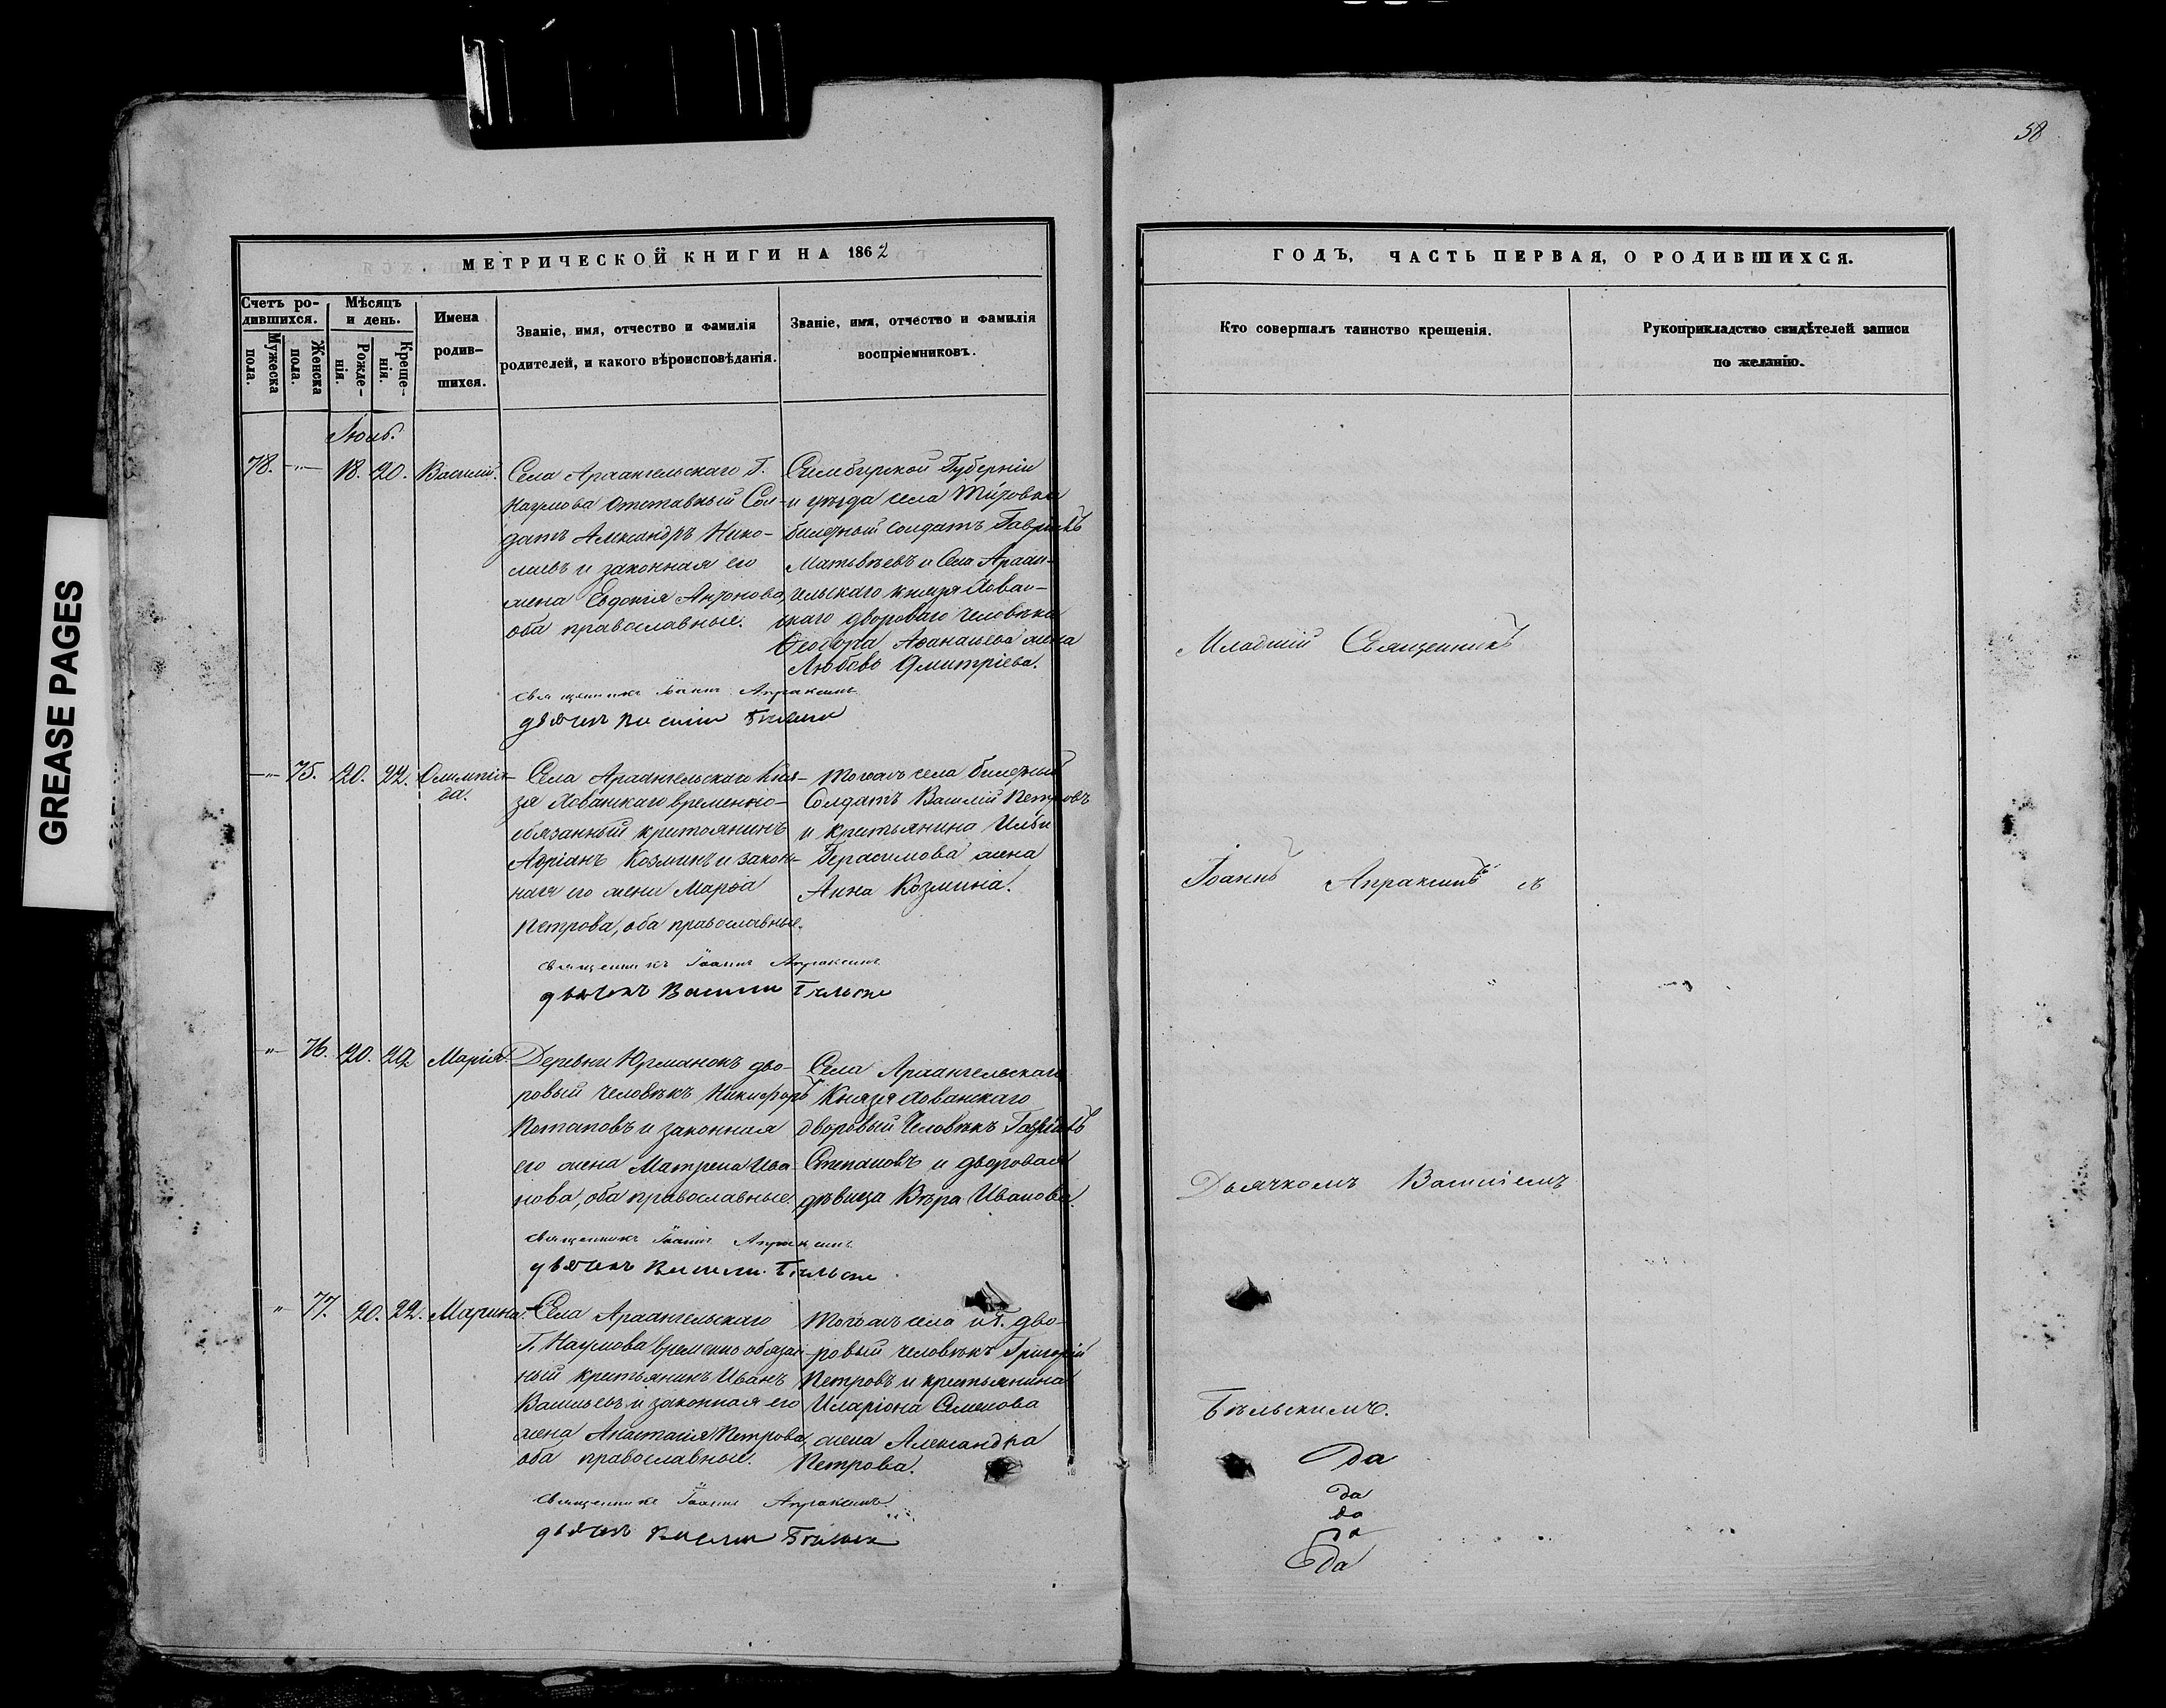 58
GREASE PAGES
МЕТРИЧЕСКОЙ КНИГИ НА 1862
Счетъ ро-
дившихся.
Мужеска
пола.
Женска
пола.
Мѣсяцъ
и день.
Рожде-
нія.
Креще-
нія.
Имена
родив-
шихся.
Званіе, имя, отчество и фамилія
родителей, и какого вѣроисповѣданія.
Званіе, имя, отчество и фамилія
воспріемниковъ.
Іюль.
78. —"— 18. 20. Василій.
Села Архангельскаго Г.
Наумова отставный Сол-
датъ Александръ Нико-
лаевъ и законная его
жена Евдокія Антонова,
оба православные.
Симбирской Губерніи
и уѣзда села
билетный солдатъ Гавріилъ
Матвѣевъ и Села Архан-
гельскаго князя Хован-
скаго двороваго человѣка
Ѳеодора Аѳанасьева жена
Любовь Дмитріева.
священникъ Іоаннъ Апраксинъ
дьячекъ Василій Бѣльскій
—"— 75. 20. 22. Олимпіа-
да.
Села Архангельскаго Кня-
зя Хованскаго временно-
обязанный крестьянинъ
Адріанъ Козминъ и закон-
ная его жена Марѳа
Петрова, оба православные.
Тогожъ села билетный
Солдатъ Василій Петровъ
и крестьянина Ильи
Герасимова жена
Анна Козмина.
священникъ Іоаннъ Апраксинъ
дьячекъ Василій Бѣльскій
—"— 76. 20. 22. Марія.
Деревни Юрманокъ дво-
ровый человѣкъ Никифоръ
Потаповъ и законная
его жена Матрена Ива-
нова, оба православные.
Села Архангельскаго
Князя Хованскаго
дворовый человѣкъ Гавріилъ
Степановъ и дворовая
дѣвица Вѣра Иванова.
священникъ Іоаннъ Апраксинъ
дьячекъ Василій Бѣльскій
" 77. 20. 22. Марина.
Села Архангельскаго
Г. Наумова временно обязан-
ный крестьянинъ Иванъ
Васильевъ и законная его
жена Анастасія Петрова,
оба православные.
Тогожъ села и Г. дво-
ровый человѣкъ Григорій
Петровъ и крестьянина
Иларіона Семенова
жена Александра
Петрова.
священникъ Іоаннъ Апраксинъ
дьячекъ Василій Бѣльскій
ГОДЪ, ЧАСТЬ ПЕРВАЯ, О РОДИВШИХСЯ.
Кто совершалъ таинство крещенія.
Рукоприкладство свидѣтелей записи
по желанію.
Младшій Священникъ
Іоаннъ Апраксинъ съ
Дьячкомъ Василіемъ
Бѣльскимъ.